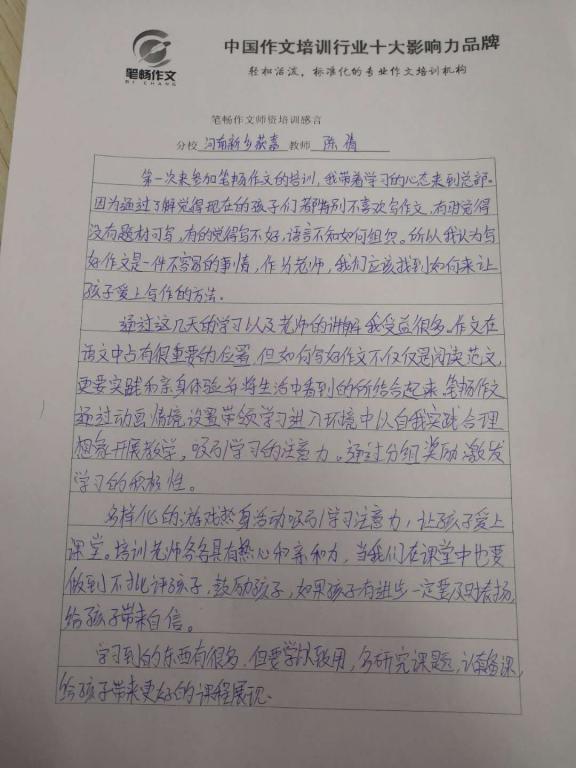 中国作文培训行业十大影响力品牌
轻松活泼，标准化的专业作文培训机构
笔畅作文
BI CHANG
笔畅作文师资培训感言
分校 河南新乡获嘉 教师 陈倩
第一次来参加笔畅作文的培训，我带着学习的心态来到总部。
因为通过了解觉得现在的孩子们都特别不喜欢写作文，有的觉得
没有题材可写，有的觉得写不好，语言不知如何组织。所以我认为写
好作文是一件不容易的事情，作为老师，我们应该找到如何来让
孩子爱上写作的方法。
通过这几天的学习以及老师的讲解我受益很多。作文在
语文中占有很重要的位置，但如何写好作文不仅仅是阅读范文，
更要实践和亲身体验并将生活中看到的所结合起来。笔畅作文
通过动画情境，设置带级学习进入环境中以自我实践合理
想象开展教学，吸引学习的注意力，通过分组奖励激发
学习的积极性。
多样化的游戏热身活动吸引学习注意力，让孩子爱上
课堂。培训老师各各具有热心和亲和力，当我们在课堂中也要
做到不批评孩子，鼓励孩子，如果孩子有进步一定要及时表扬，
给孩子带来自信。
学习到的东西有很多，但要学以致用，多研究课题，认真备课，
给孩子带来更好的课程展现。